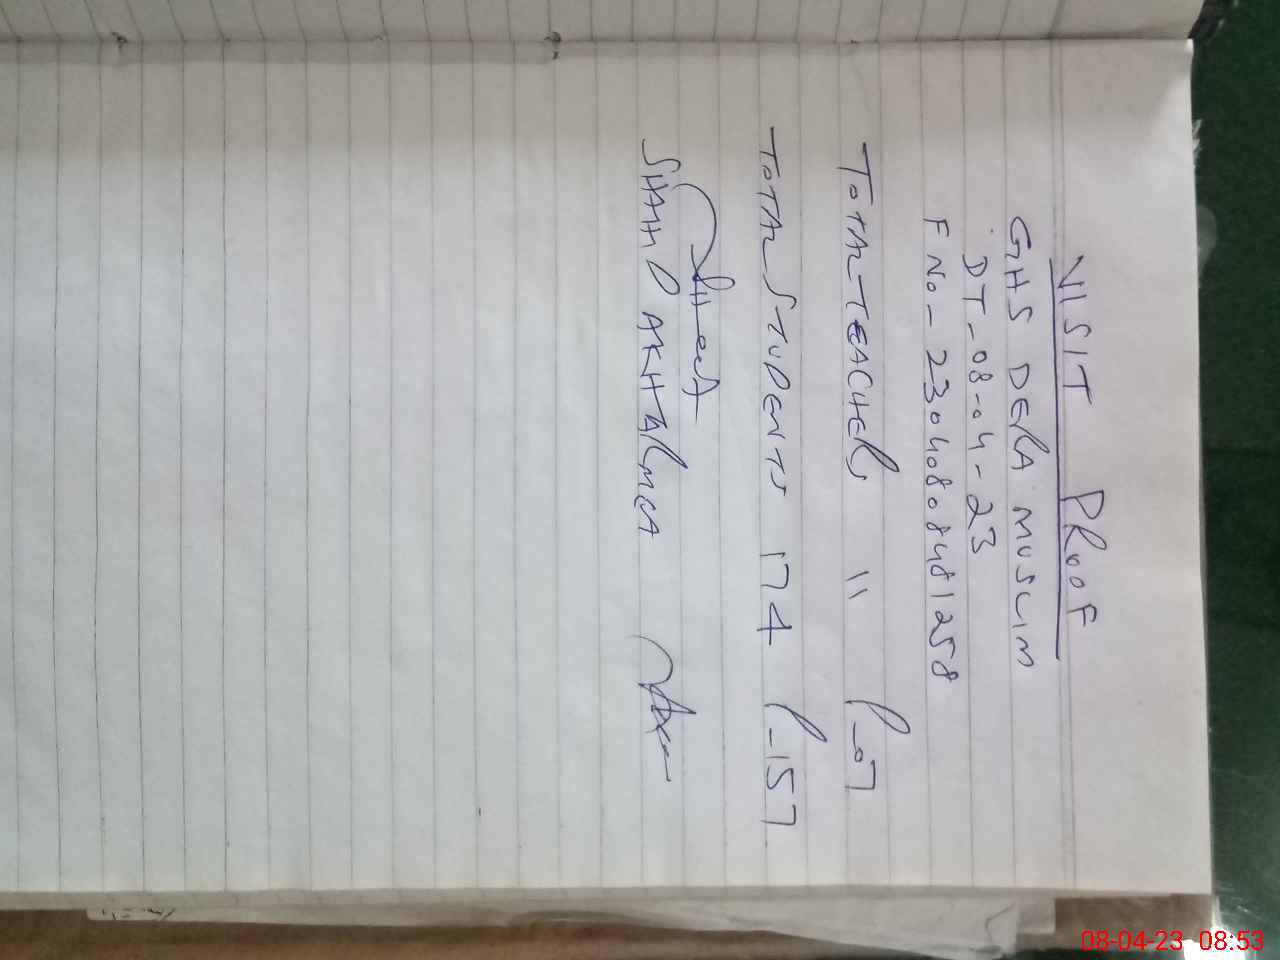 VISIT PROOF
GHS DERA MUSLIM
DT-08-04-23
F No-23040808481258
TOTAL TEACHERS 11 P-07
TOTAL STUDENTS 174 P-157
SHAHID AKHTAR MEA
08-04-23 08:53